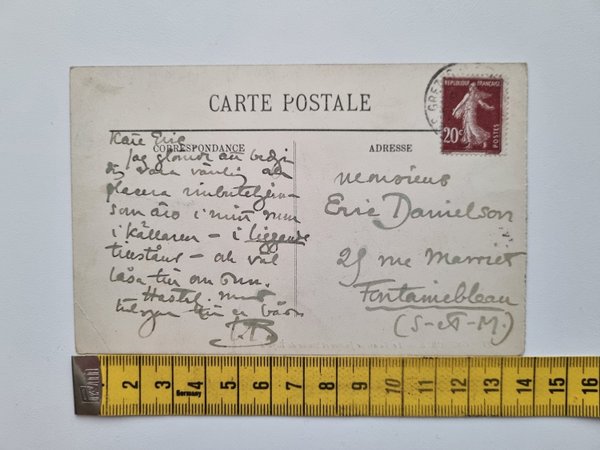 CARTE POSTALE
CORRESPONDANCE
ADRESSE
REPUBLIQUE FRANÇAISE
20c
POSTES
Käre Eric
Jag glömde att bedja
dig vara vänlig att
placera vinbuteljerna
som äro i mitt rum
i källaren – i liggande
tillstånd – och väl
låsa till om dem.
Hastel.
Monsieur
Eric Danielson
25 rue
Fontainebleau
(S-et-M.)
1 2 3 4 5 6 7 8 9 10 11 12 13 14 15 16
Germany